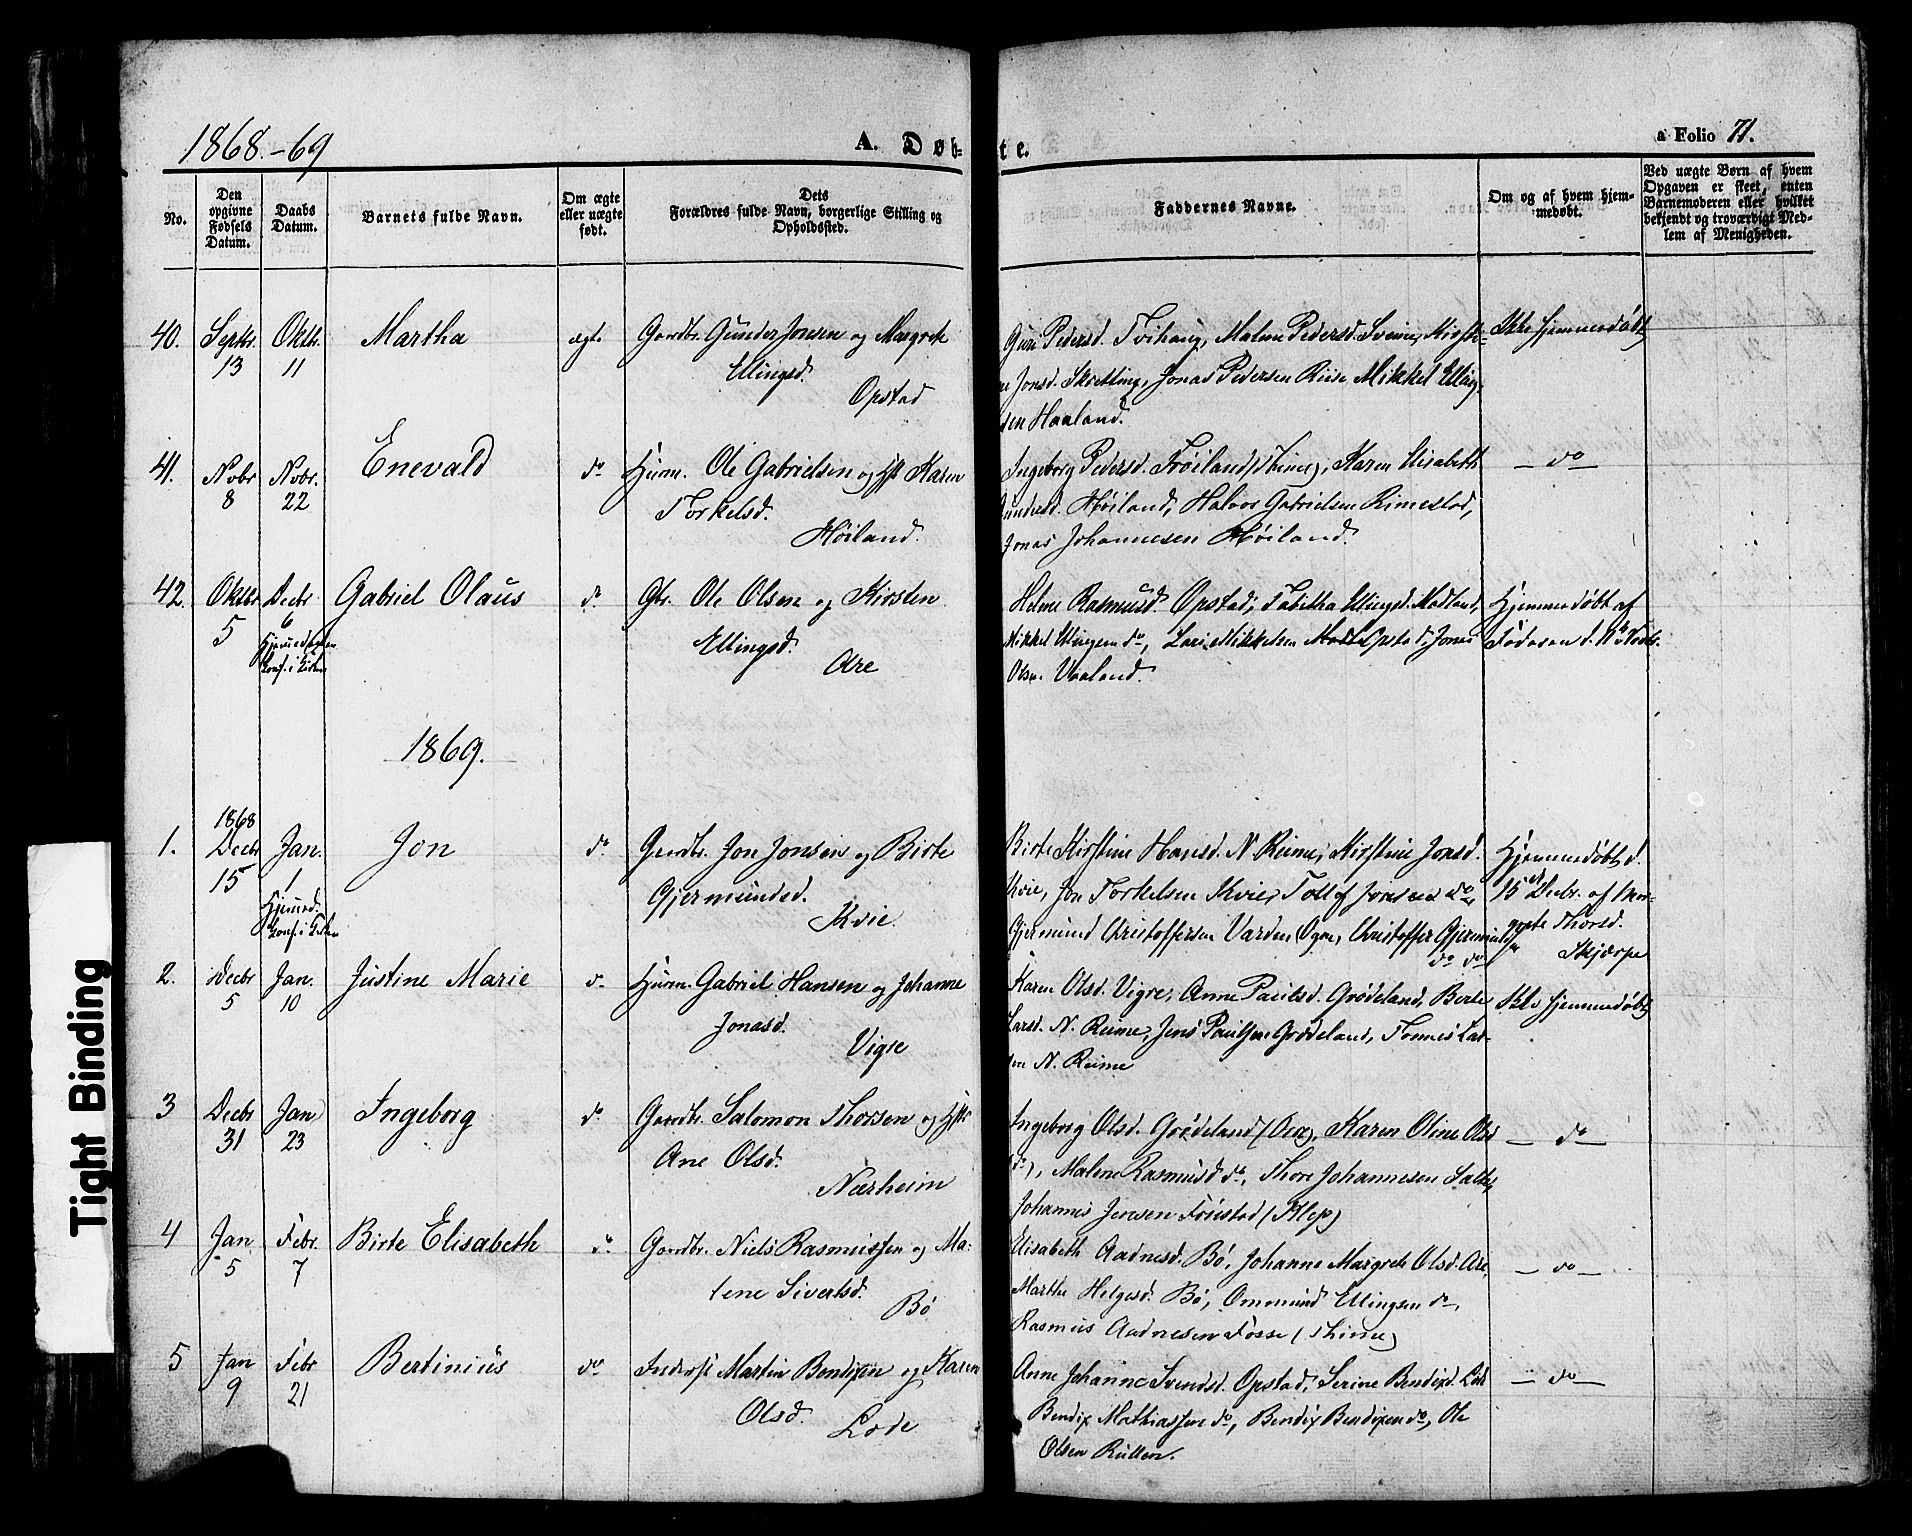 1868.-69
A. Døb-
te.
a Folio 71.
No.
Den opgivne Fødsels Datum.
Daabs Datum.
Barnets fulde Navn.
Om ægte eller uægte født.
Dets Forældres fulde Navn, borgerlige Stilling og Opholdssted.
Faddernes Navne.
Om og af hvem hjemmedøbt.
Ved uægte Børn af hvem Opgaven er skeet, enten Barnemoderen eller hvilket bekjendt og troværdigt Medlem af Menigheden.
40. Septbr. Oktbr. Martha ægt. Gaardbr. Gunder Jonsen og Margrete
13 11 Ellingsd.
Opstad
Guri Pedersd. Tvihaug, Malene Pedersd. Kirsti-
ne Jonsd. Skretting, Jonas Pedersen Riise Mikkel Elling-
sen Haaland.
Ikke hjemmedøbt
41. Novbr Nobr. Enevald do Huusm. Ole Gabrielsen og Hst Karen
8 22 Torkelsd.
Höiland.
Ingeborg Pedersd. Fröiland (Thime), Karen Elisabeth
Gundersd. Höiland, Halvor Gabrielsen Rimestad,
Jonas Johannesen Höiland.
— do —
42. Oktbr Decbr Gabriel Olaus d. Gbr. Ole Olsen og Kirsten
5 6 Ellingsd.
Are
Konf. i Kirken
Helene Rasmusd. Opstad, Tabitha Ellingsd. Madland,
Mikkel Ellingsen do, Lars Mikkelsen Opstad, Jonas
Olsen Vaaland.
Hjemmedøbt af
Faderen d.
1869.
1. 1868 Decbr Jan. Jon do Gaardbr. Jon Jonsen og Birte
15 1 Gjermundsd.
Kvie
Hjemmed.
Konf. i Kirken
Birte Kirstine Hansd. N. Reime, Kirstine Jonsd.
Kvie, Jon Torkelsen Kvie, Tollef Jonsen do,
Gjermund Christoffersen Varden (Ogne), Christoffer Gjermunds-
do do
Hjemmedøbt d.
15 Decbr. af Mar-
grete Thorsd.
Skjærpe
2. Decbr Jan. Justine Marie d. Huusm. Gabriel Hansen og Johanne
5 10 Jonasd.
Vigre
Karen Olsd. Vigre, Anne Paulsd. Grödeland, Berte
Larsd. N. Reime, Jens Paulsen Grödeland, Tønnes Lar-
sen N. Reime
Ikke hjemmedøbt
3 Decbr Jan Ingeborg do Gaardbr. Salomon Thorsen og Hstr
31 23 Ane Olsd.
Nærheim
Ingeborg Olsd. Grödeland (Are), Karen Oline Olsd
do), Malene Rasmusd do, Thore Johannesen Salte,
Johannes Jensen Fôristad (Klep)
— do —
4 Jan Febr. Birte Elisabeth d. Gaardbr. Niels Rasmussen og Ma-
5 7 lene Sivertsd.
Bö
Elisabeth Aadnesd. Bö, Johanne Margrete Olsd. Are,
Marthe Helgesd. Bö, Ommund Ellingsen do,
Rasmus Aadnesen Fosse (Thime)
— do —
5 Jan Febr Bertinius do Inderst Martin Bendixen og Karen
9 21 Olsd.
Lode
Anne Johanne Svendsd. Opstad, Serine Bendixd. Lode
Bendix Mathiassen do, Bendix Bendixen do, Ole
Olsen Rullen.
— do —
Tight Binding